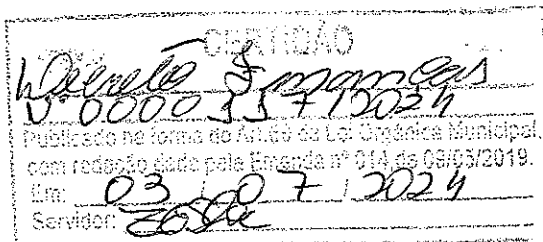 CERTIDÃO
Decreto Finanças
Nº 0000357/2024
Publicado na forma do Art.69 da Lei Orgânica Municipal,
com redação dada pela Emenda nº 014 de 09/05/2019.
Em: 03 / 07 / 2024
Servidor: